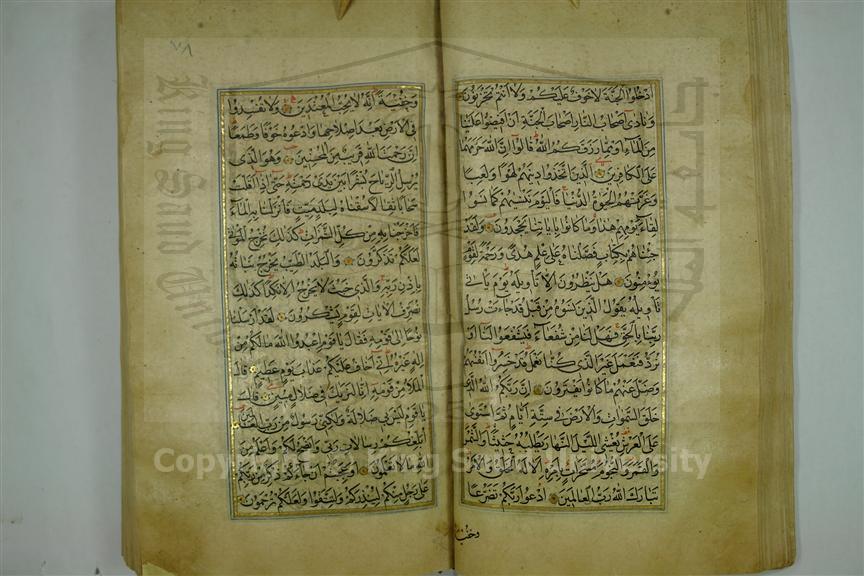 ادخلوا الجنة لا خوف عليكم ولا انتم تحزنون
ونادى اصحاب النار اصحاب الجنة ان افيضوا علينا
من الماء او مما رزقكم الله قالوا ان الله حرمهما
على الكافرين الذين اتخذوا دينهم لهوا ولعبا
وغرتهم الحيوة الدنيا فاليوم ننسيهم كما نسوا
لقاء يومهم هذا وما كانوا باياتنا يجحدون ولقد
جئناهم بكتاب فصلناه على علم هدى ورحمة لقوم
يؤمنون هل ينظرون الا تاويله يوم ياتى
تاويله يقول الذين نسوه من قبل قد جاءت رسل
ربنا بالحق فهل لنا من شفعاء فيشفعوا لنا او
نرد فنعمل غير الذى كنا نعمل قد خسروا انفسهم
وضل عنهم ما كانوا يفترون ان ربكم الله الذى
خلق السموات والارض فى ستة ايام ثم استوى
على العرش يغشى الليل النهار يطلبه حثيثا والشمس
والقمر والنجوم مسخرات بامره الا له الخلق والامر
تبارك الله رب العالمين ادعوا ربكم تضرعا
وخفية
٧٨
وخفية انه لا يحب المعتدين ولا تفسدوا
فى الارض بعد اصلاحها وادعوه خوفا وطمعا
ان رحمت الله قريب من المحسنين وهو الذى
يرسل الرياح بشرا بين يدى رحمته حتى اذا اقلت
سحابا ثقالا سقناه لبلد ميت فانزلنا به الماء
فاخرجنا به من كل الثمرات كذلك نخرج الموتى
لعلكم تذكرون والبلد الطيب يخرج نباته
باذن ربه والذى خبث لا يخرج الا نكدا كذلك
نصرف الايات لقوم يشكرون لقد ارسلنا
نوحا الى قومه فقال يا قوم اعبدوا الله ما لكم من
اله غيره انى اخاف عليكم عذاب يوم عظيم قال
الملا من قومه انا لنريك فى ضلال مبين قال
يا قوم ليس بى ضلالة ولكنى رسول من رب العالمين
ابلغكم رسالات ربى وانصح لكم واعلم من
الله ما لا تعلمون اوعجبتم ان جاءكم ذكر من ربكم
على رجل منكم لينذركم ولتتقوا ولعلكم ترحمون
Copyright © King Saud University
King Saud University